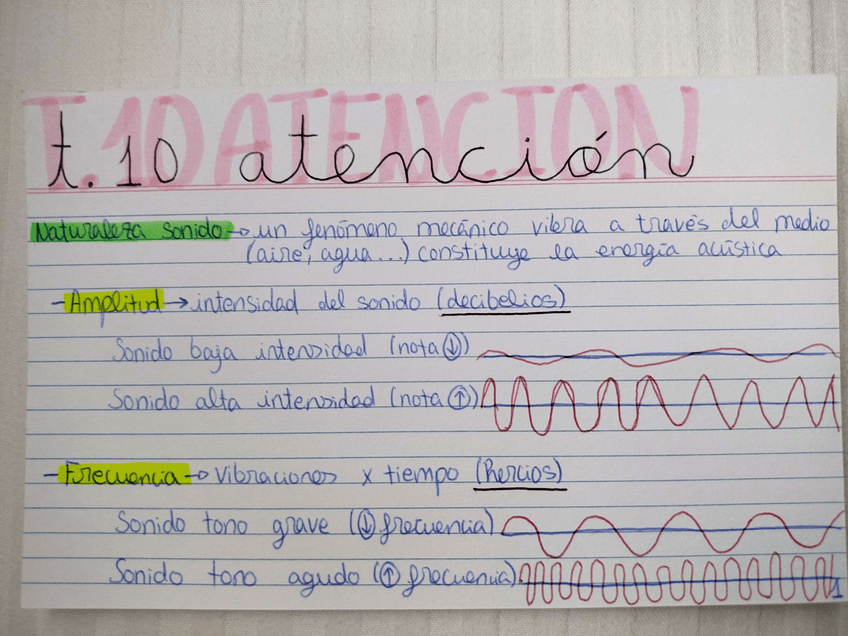 T.10 ATENCION
t.10 atención
Naturaleza sonido → un fenómeno mecánico vibra a través del medio
(aire, agua...) constituye la energía acústica
- Amplitud → intensidad del sonido (decibelios)
Sonido baja intensidad (nota ↓)
Sonido alta intensidad (nota ↑)
- Frecuencia → vibraciones x tiempo (hercios)
Sonido tono grave (↓ frecuencia)
Sonido tono agudo (↑ frecuencia)
1